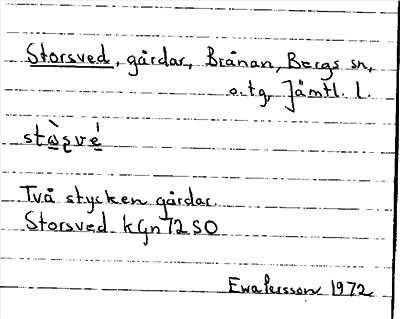 Storsved, gårdar, Brånan, Bergs sn,
o.t.g, Jämtl. l.
Två stycken gårdar.
Storsved kGn72SO
Ewa Persson 1972